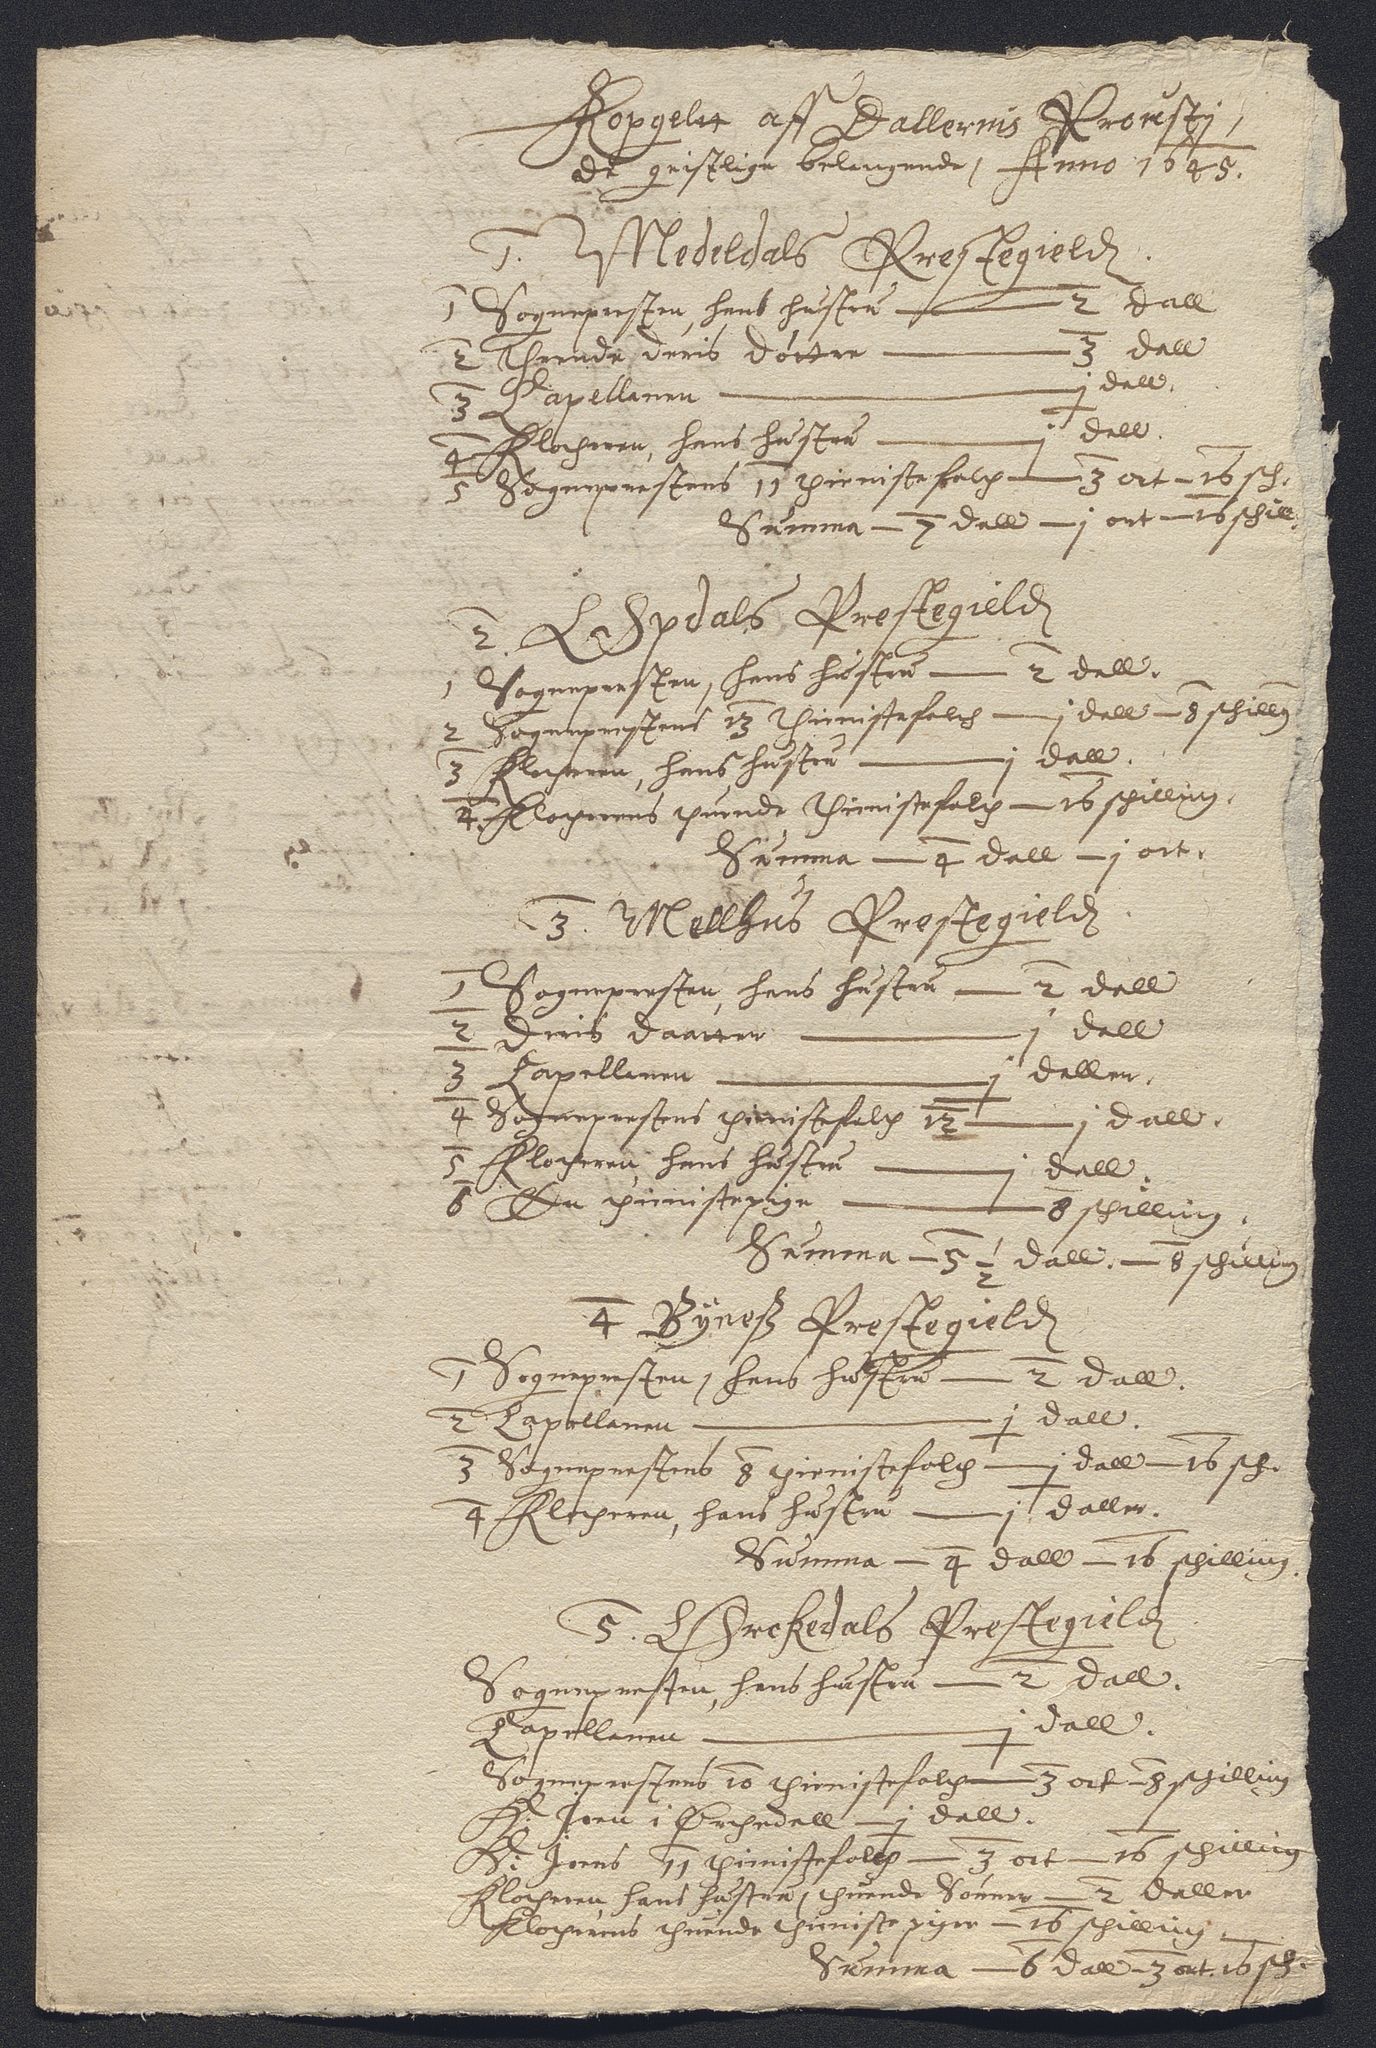 Kopgelt aff Dallernis Prousty,
de geistlige belangende, Anno 1645.
1. Medeldals Prestegield.
1 Sognepresten, hans hustru — 2 dall
2 Thrende deris döttre — 3 dall
3 Capellanen — j dall.
4 Klocheren, hans hustru — j dall.
5 Sogneprestens 11 thienistefolch — 3 ort — 16 sch.
Summa — 7 dall — j ort — 16 schill.
2. Opdals Prestegield
1 Sognepresten, hans hustru — 2 dall.
2 Sogneprestens 13 thienistefolch — j dall — 8 schilling
3 Klocheren, hans hustru — j dall.
4. Klocherens thuende thienistefolch — 16 schilling.
Summa — 4 dall — j ort.
3. Mellhus Prestegield.
1 Sognepresten, hans hustru — 2 dall
2 Deris daatter — j dall
3 Capellanen — j daller.
4 Sogneprestens thienistefolch 12 — j dall.
5 Klocheren, hans hustru — j dall.
6 En thienistepige — 8 schilling.
Summa — 5 1/2 dall. — 8 schilling
4 Byneß Prestegield
1 Sognepresten, hans hustru — 2 dall.
2 Capellanen — j dall.
3 Sogneprestens 8 thienistefolch — j dall — 16 sch.
4 Klocheren, hans hustru — j daller.
Summa — 4 dall — 16 schilling.
5. Orckedals Prestegield
Sognepresten, hans hustru — 2 dall.
Capellanen — j dall.
Sogneprestens 10 thienistefolch — 3 ort — 8 schilling
H: Joen i Orchedall — j dall.
H: Joens 11 thienistefolch — 3 ort — 16 schilling
Klocheren, hans hustru, thuende Sönner — 2 daller
Klocherens thuende thieniste piger — 16 schilling.
Summa — 6 dall — 3 ort. 16 sch.